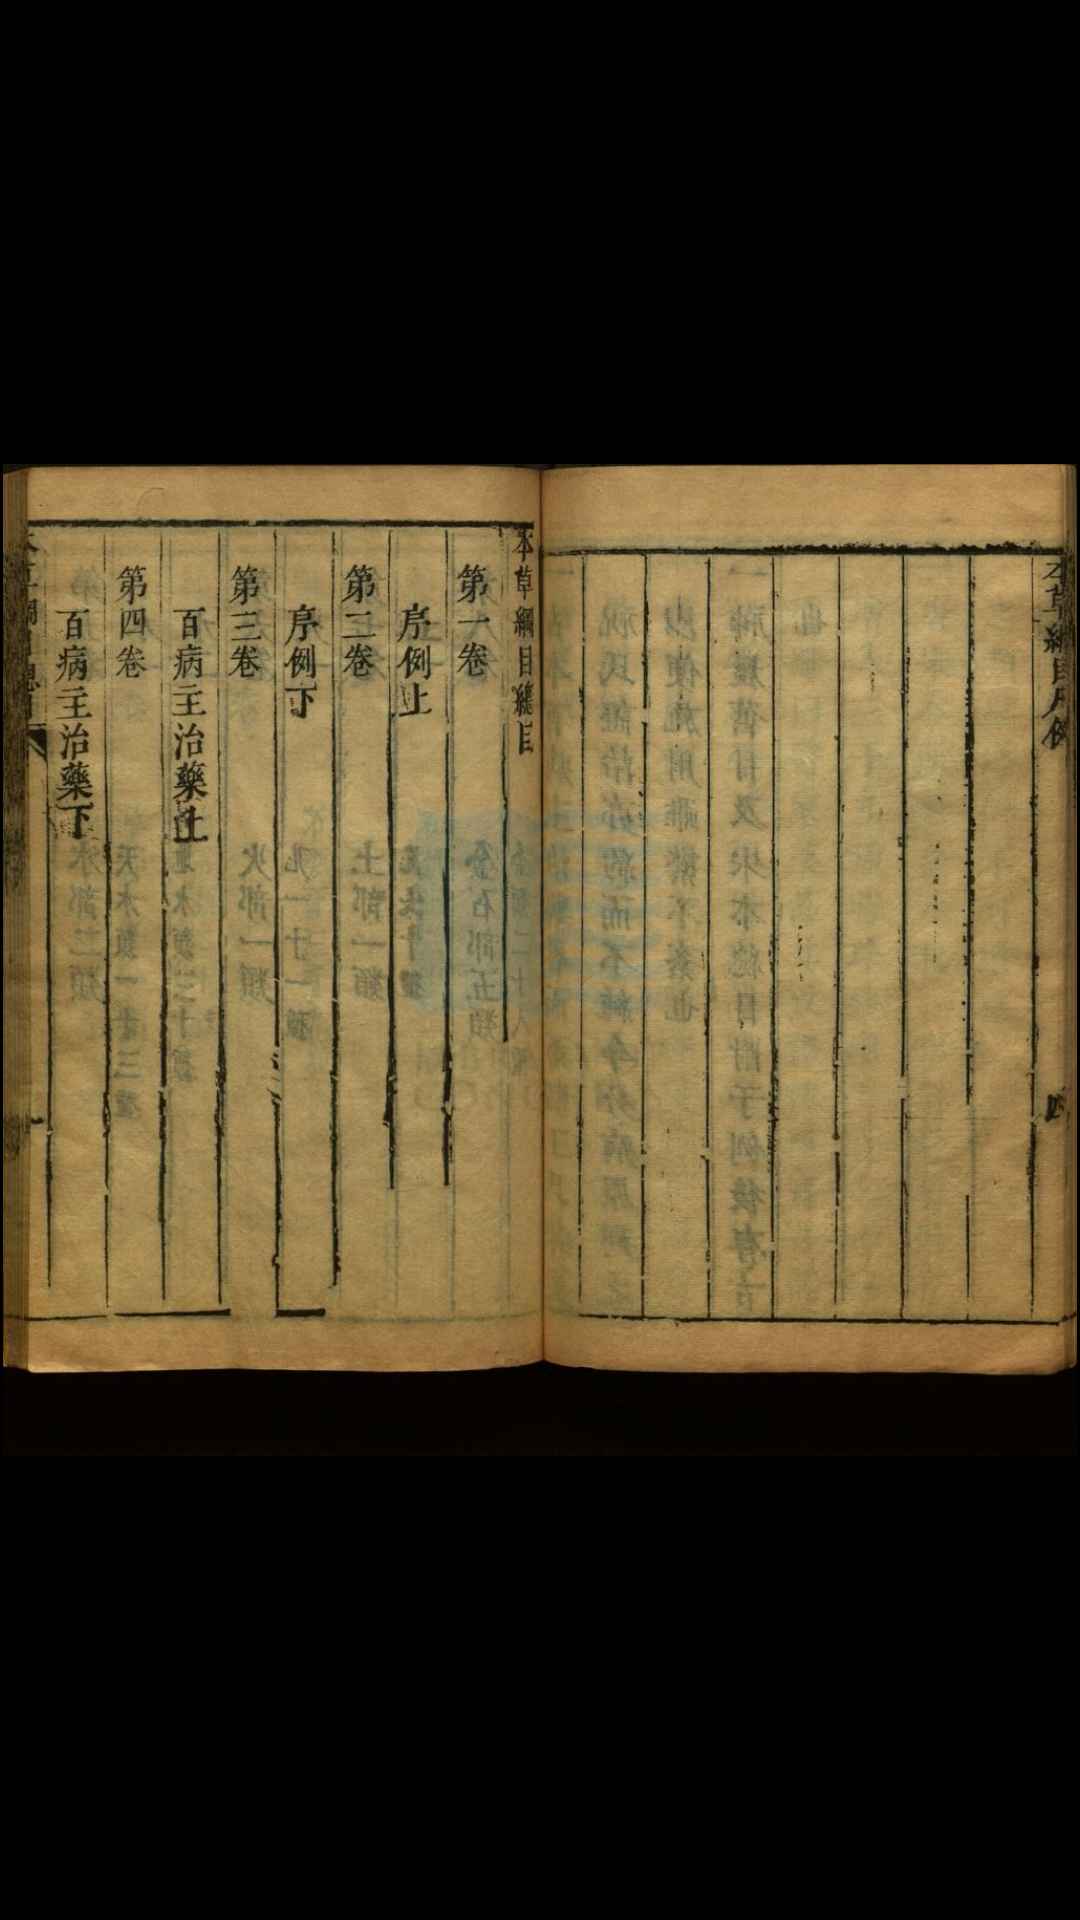 本草綱目凡例
四
本草綱目總目
第一卷
序例上
第二卷
序例下
第三卷
百病主治藥上
第四卷
百病主治藥下